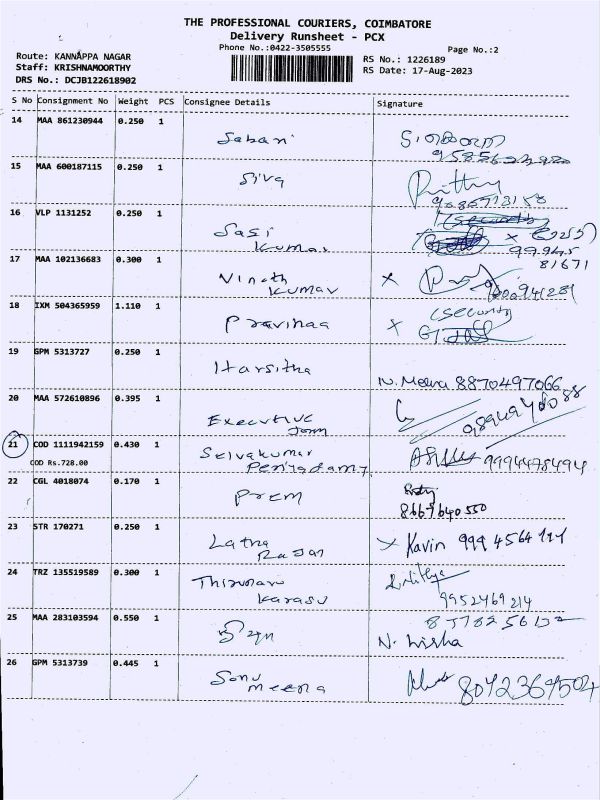 THE PROFESSIONAL COURIERS, COIMBATORE
Delivery Runsheet - PCX
Phone No.:0422-3505555
Page No.:2
Route: KANNAPPA NAGAR
Staff: KRISHNAMOORTHY
DRS No.: DCJB122618902
RS No.: 1226189
RS Date: 17-Aug-2023
S No Consignment No Weight PCS Consignee Details Signature
14 MAA 861230944 0.250 1
Sabari
15 MAA 600187115 0.250 1
Siva
16 VLP 1131252 0.250 1
(Security)
Sasi
Kumar
99945
81671
17 MAA 102136683 0.300 1
Vinoth
Kumar
18 IXM 504365959 1.110 1
(Security)
Pravinaa
19 GPM 5313727 0.250 1
Harsitha
N. Meena 8870497066
20 MAA 572610896 0.395 1
Executive
21 COD 1111942159 0.430 1
COD Rs.728.00
Selvakumar
9994478494
22 CGL 4018074 0.170 1
Prem
8667640550
23 STR 170271 0.250 1
Latha
Rajan
x Kavin 999 4564 114
24 TRZ 135519589 0.300 1
Thirunavu
karasu
R. Nithya
9952469214
25 MAA 283103594 0.550 1
N. Lisha
26 GPM 5313739 0.445 1
Sonu
meena
8072369504